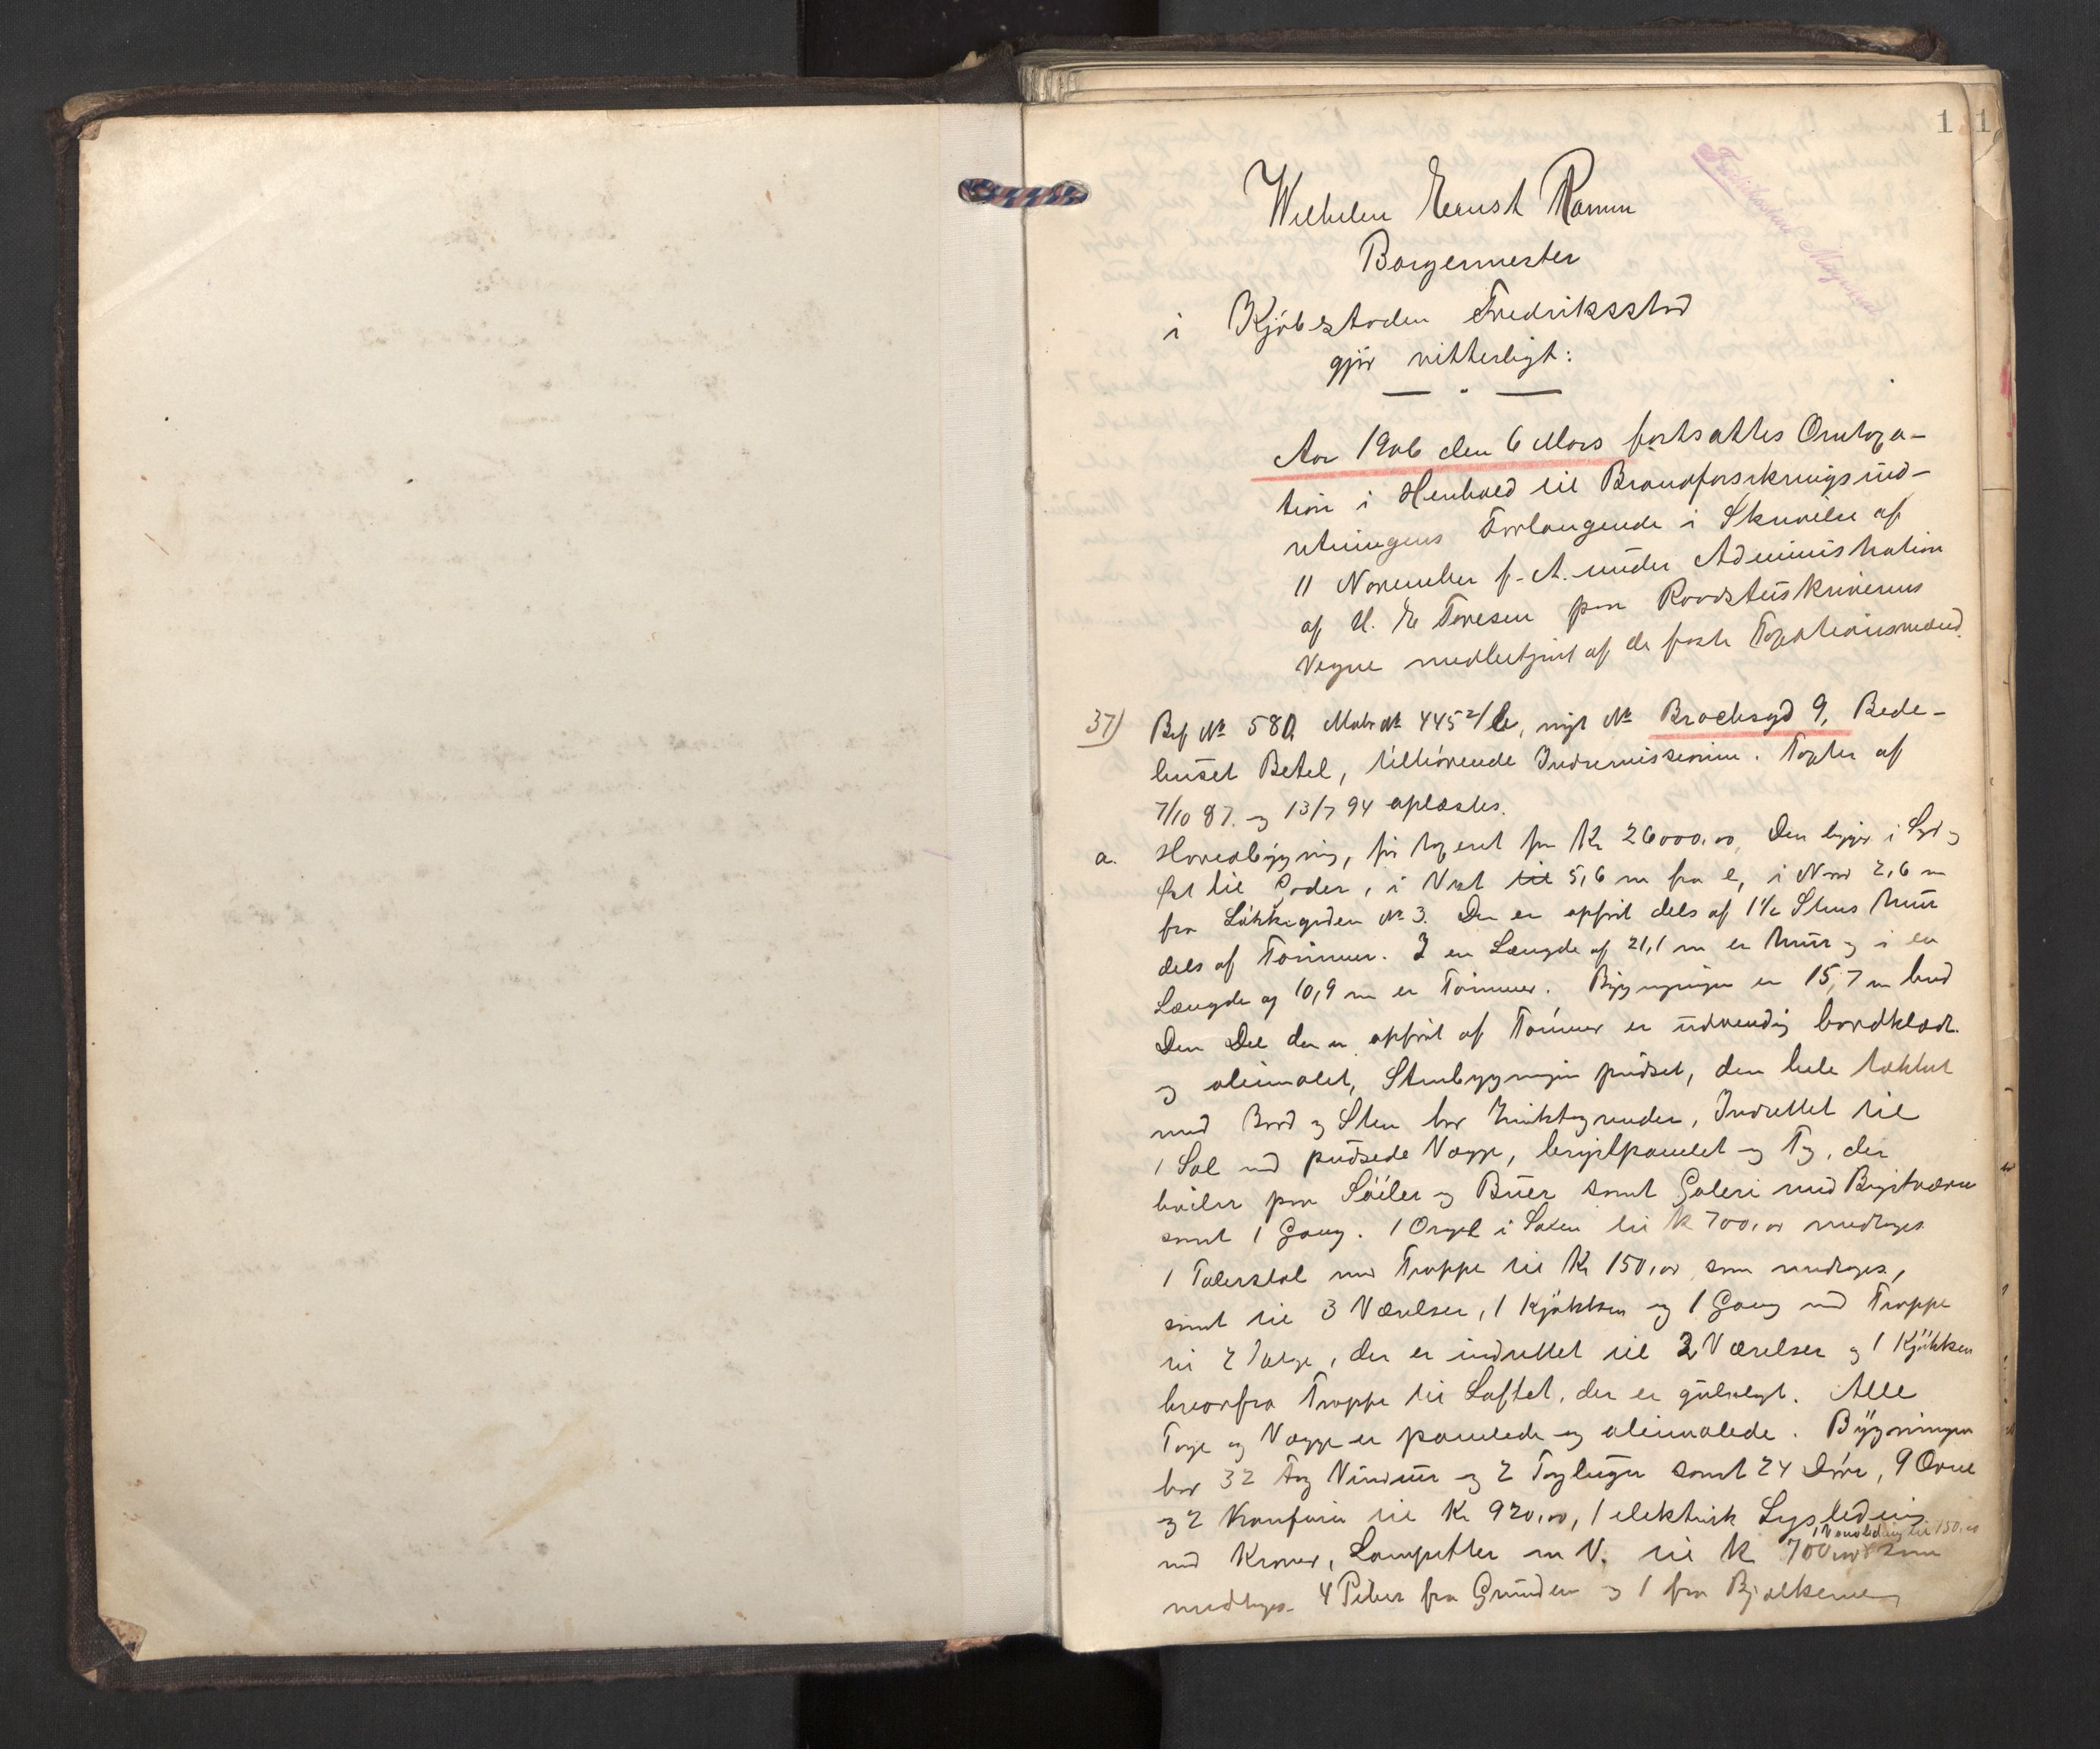 1 1
Wilhelm Ernst Ramm
Borgermester
i Kjöbstaden Fredriksstad
gjör vitterligt:
Aar 1906 den 6 Mars fortsattes Omtaxa-
tion i Henhold til Brandforsikringsind-
retningens Forlangende i Skrivelse af
11 November f. A. under Administration
af H. E. Toresen paa Raadstuskriverens
Vegne medbetjent af de faste Taxationsmænd.
37) Brf № 580, Matr № 445²/b, nyt № Brochsgd 9, Bede-
huset Betel, tilhörende Indremissionen. Taxter af
7/10 87. og 13/7 94 oplæstes.
a. Hovedbygning, för taxeret for Kr 26000,00. Den ligger i Syd og
Öst til Gader, i Vest 5,6 m fra e, i Nord 2,6 m
fra Lökkegaden № 3. Den er opfört dels af 1½ Stens Mur
dels af Tömmer. I en Længde af 21,1 m er Mur og i en
Længde af 10,9 m er Tömmer. Bygningen er 15,7 m bred
Den Del der er opfört af Tömmer er udvendig bordklædt
og oliemalet, Stenbygningen pudset, den hele tækket
med Bord og Sten har Zinktagrender, Indrettet til
1 Sal med pudsede Vægge, brystpanelet og Tag, der
hviler paa Söiler og Buer samt Galeri med Brystværn
samt 1 Gang. 1 Orgel i Salen til Kr 700,00 medtages
1 Talerstol med Trappe til Kr 150,00 som medtages,
samt til 3 Værelser, 1 Kjökken og 1 Gang med Trappe
til 2 Etage, der er indrettet til 2 Værelser og 1 Kjökken
hvorfra Trappe til Loftet, der er gulvlagt. Alle
Tage og Vægge er panelede og oliemalede. Bygningen
har 32 fag Vinduer og 2 Tagluger samt 24 Döre, 9 Ovne
og 2 Komfurer til Kr 920,00, 1 elektrisk Lysledning
1 Vandledning til 150,00
med Kroner, Lampetter m V. til Kr 700,00 som
medtages. 4 Piber fra Grunden og 1 fra Bjælkerne